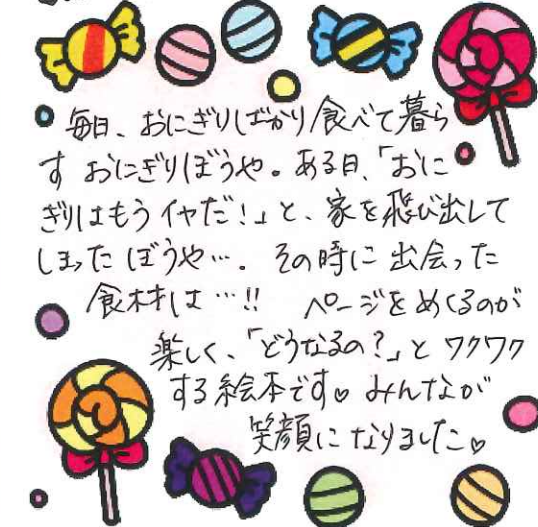 毎日、おにぎりばかり食べて暮ら
す おにぎりぼうや。ある日、「おに
ぎりはもうイヤだ!」と、家を飛び出して
しまった ぼうや…。その時に 出会った
食材は…!! ページをめくるのが
楽しく、「どうなるの?」と ワクワク
する絵本です♡ みんなが
笑顔に なりました♡